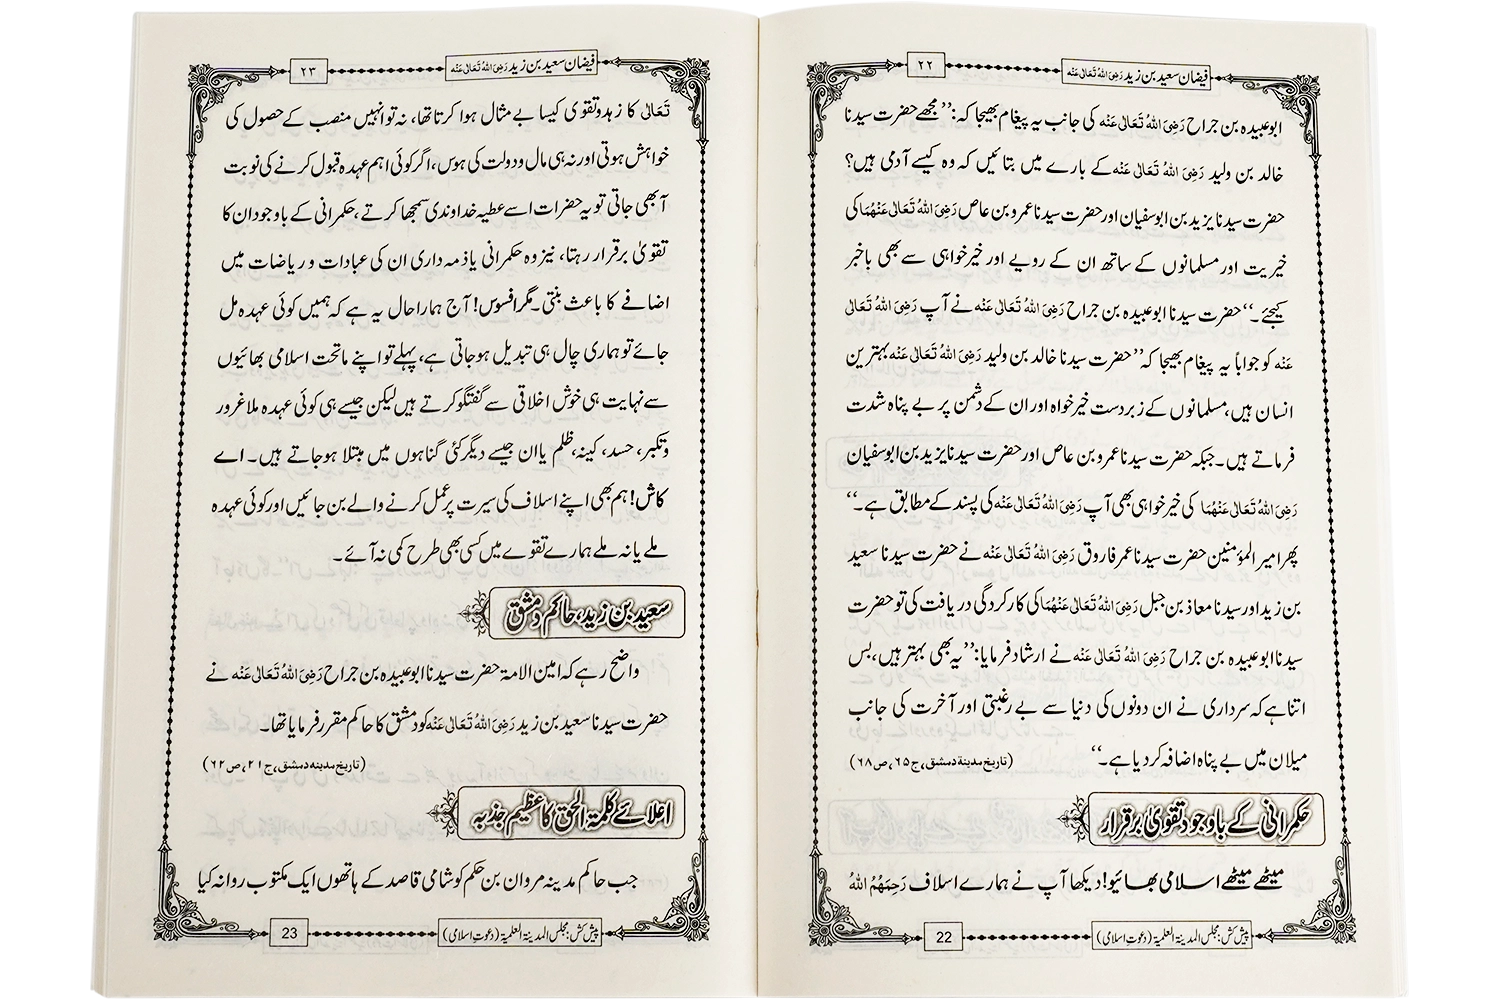 ۲۲
فیضان سعید بن زید رَضِیَ اللہُ تَعَالٰی عَنْہ
ابو عبیدہ بن جراح رَضِیَ اللہُ تَعَالٰی عَنْہ کی جانب یہ پیغام بھیجا کہ: ’’مجھے حضرت سیدنا
خالد بن ولید رَضِیَ اللہُ تَعَالٰی عَنْہ کے بارے میں بتائیں کہ وہ کیسے آدمی ہیں؟
حضرت سیدنا یزید بن ابوسفیان اور حضرت سیدنا عمرو بن عاص رَضِیَ اللہُ تَعَالٰی عَنْہُمَا کی
خیریت اور مسلمانوں کے ساتھ ان کے رویے اور خیر خواہی سے بھی باخبر
کیجئے۔‘‘ حضرت سیدنا ابو عبیدہ بن جراح رَضِیَ اللہُ تَعَالٰی عَنْہ نے آپ رَضِیَ اللہُ تَعَالٰی
عَنْہ کو جواباً یہ پیغام بھیجا کہ ’’حضرت سیدنا خالد بن ولید رَضِیَ اللہُ تَعَالٰی عَنْہ بہترین
انسان ہیں، مسلمانوں کے زبردست خیر خواہ اور ان کے دشمن پر بے پناہ شدت
فرماتے ہیں۔ جبکہ حضرت سیدنا عمرو بن عاص اور حضرت سیدنا یزید بن ابوسفیان
رَضِیَ اللہُ تَعَالٰی عَنْہُمَا کی خیر خواہی بھی آپ رَضِیَ اللہُ تَعَالٰی عَنْہ کی پسند کے مطابق ہے۔‘‘
پھر امیر المؤمنین حضرت سیدنا عمر فاروق رَضِیَ اللہُ تَعَالٰی عَنْہ نے حضرت سیدنا سعید
بن زید اور سیدنا معاذ بن جبل رَضِیَ اللہُ تَعَالٰی عَنْہُمَا کی کارکردگی دریافت کی تو حضرت
سیدنا ابو عبیدہ بن جراح رَضِیَ اللہُ تَعَالٰی عَنْہ نے ارشاد فرمایا: ’’یہ بھی بہتر ہیں، بس
اتنا ہے کہ سرداری نے ان دونوں کی دنیا سے بے رغبتی اور آخرت کی جانب
میلان میں بے پناہ اضافہ کر دیا ہے۔‘‘ (تاریخ مدینة دمشق، ج۶۵، ص۶۸)
حکمرانی کے باوجود تقویٰ برقرار
میٹھے میٹھے اسلامی بھائیو! دیکھا آپ نے ہمارے اسلاف رَحِمَہُمُ اللہُ
پیش کش: مجلس المدینۃ العلمیۃ (دعوتِ اسلامی)
22
۲۳
فیضان سعید بن زید رَضِیَ اللہُ تَعَالٰی عَنْہ
تَعَالٰی کا زہد و تقوی کیسا بے مثال ہوا کرتا تھا، نہ تو انہیں منصب کے حصول کی
خواہش ہوتی اور نہ ہی مال و دولت کی ہوس، اگر کوئی اہم عہدہ قبول کرنے کی نوبت
آبھی جاتی تو یہ حضرات اسے عطیہ خداوندی سمجھا کرتے، حکمرانی کے باوجود ان کا
تقویٰ برقرار رہتا، نیز وہ حکمرانی یا ذمہ داری ان کی عبادات و ریاضات میں
اضافے کا باعث بنتی۔ مگر افسوس! آج ہمارا حال یہ ہے کہ ہمیں کوئی عہدہ مل
جائے تو ہماری چال ہی تبدیل ہو جاتی ہے، پہلے تو اپنے ماتحت اسلامی بھائیوں
سے نہایت ہی خوش اخلاقی سے گفتگو کرتے ہیں لیکن جیسے ہی کوئی عہدہ ملا غرور
و تکبر، حسد، کینہ، ظلم یا ان جیسے دیگر کئی گناہوں میں مبتلا ہو جاتے ہیں۔ اے
کاش! ہم بھی اپنے اسلاف کی سیرت پر عمل کرنے والے بن جائیں اور کوئی عہدہ
ملے یا نہ ملے ہمارے تقوے میں کسی بھی طرح کمی نہ آئے۔
سعید بن زید، حاکم دمشق
واضح رہے کہ امین الامۃ حضرت سیدنا ابو عبیدہ بن جراح رَضِیَ اللہُ تَعَالٰی عَنْہ نے
حضرت سیدنا سعید بن زید رَضِیَ اللہُ تَعَالٰی عَنْہ کو دمشق کا حاکم مقرر فرمایا تھا۔
(تاریخ مدینہ دمشق، ج۲۱، ص۶۲)
اعلائے کلمۃ الحق کا عظیم جذبہ
جب حاکم مدینہ مروان بن حکم کو شامی قاصد کے ہاتھوں ایک مکتوب روانہ کیا
پیش کش: مجلس المدینۃ العلمیۃ (دعوتِ اسلامی)
23